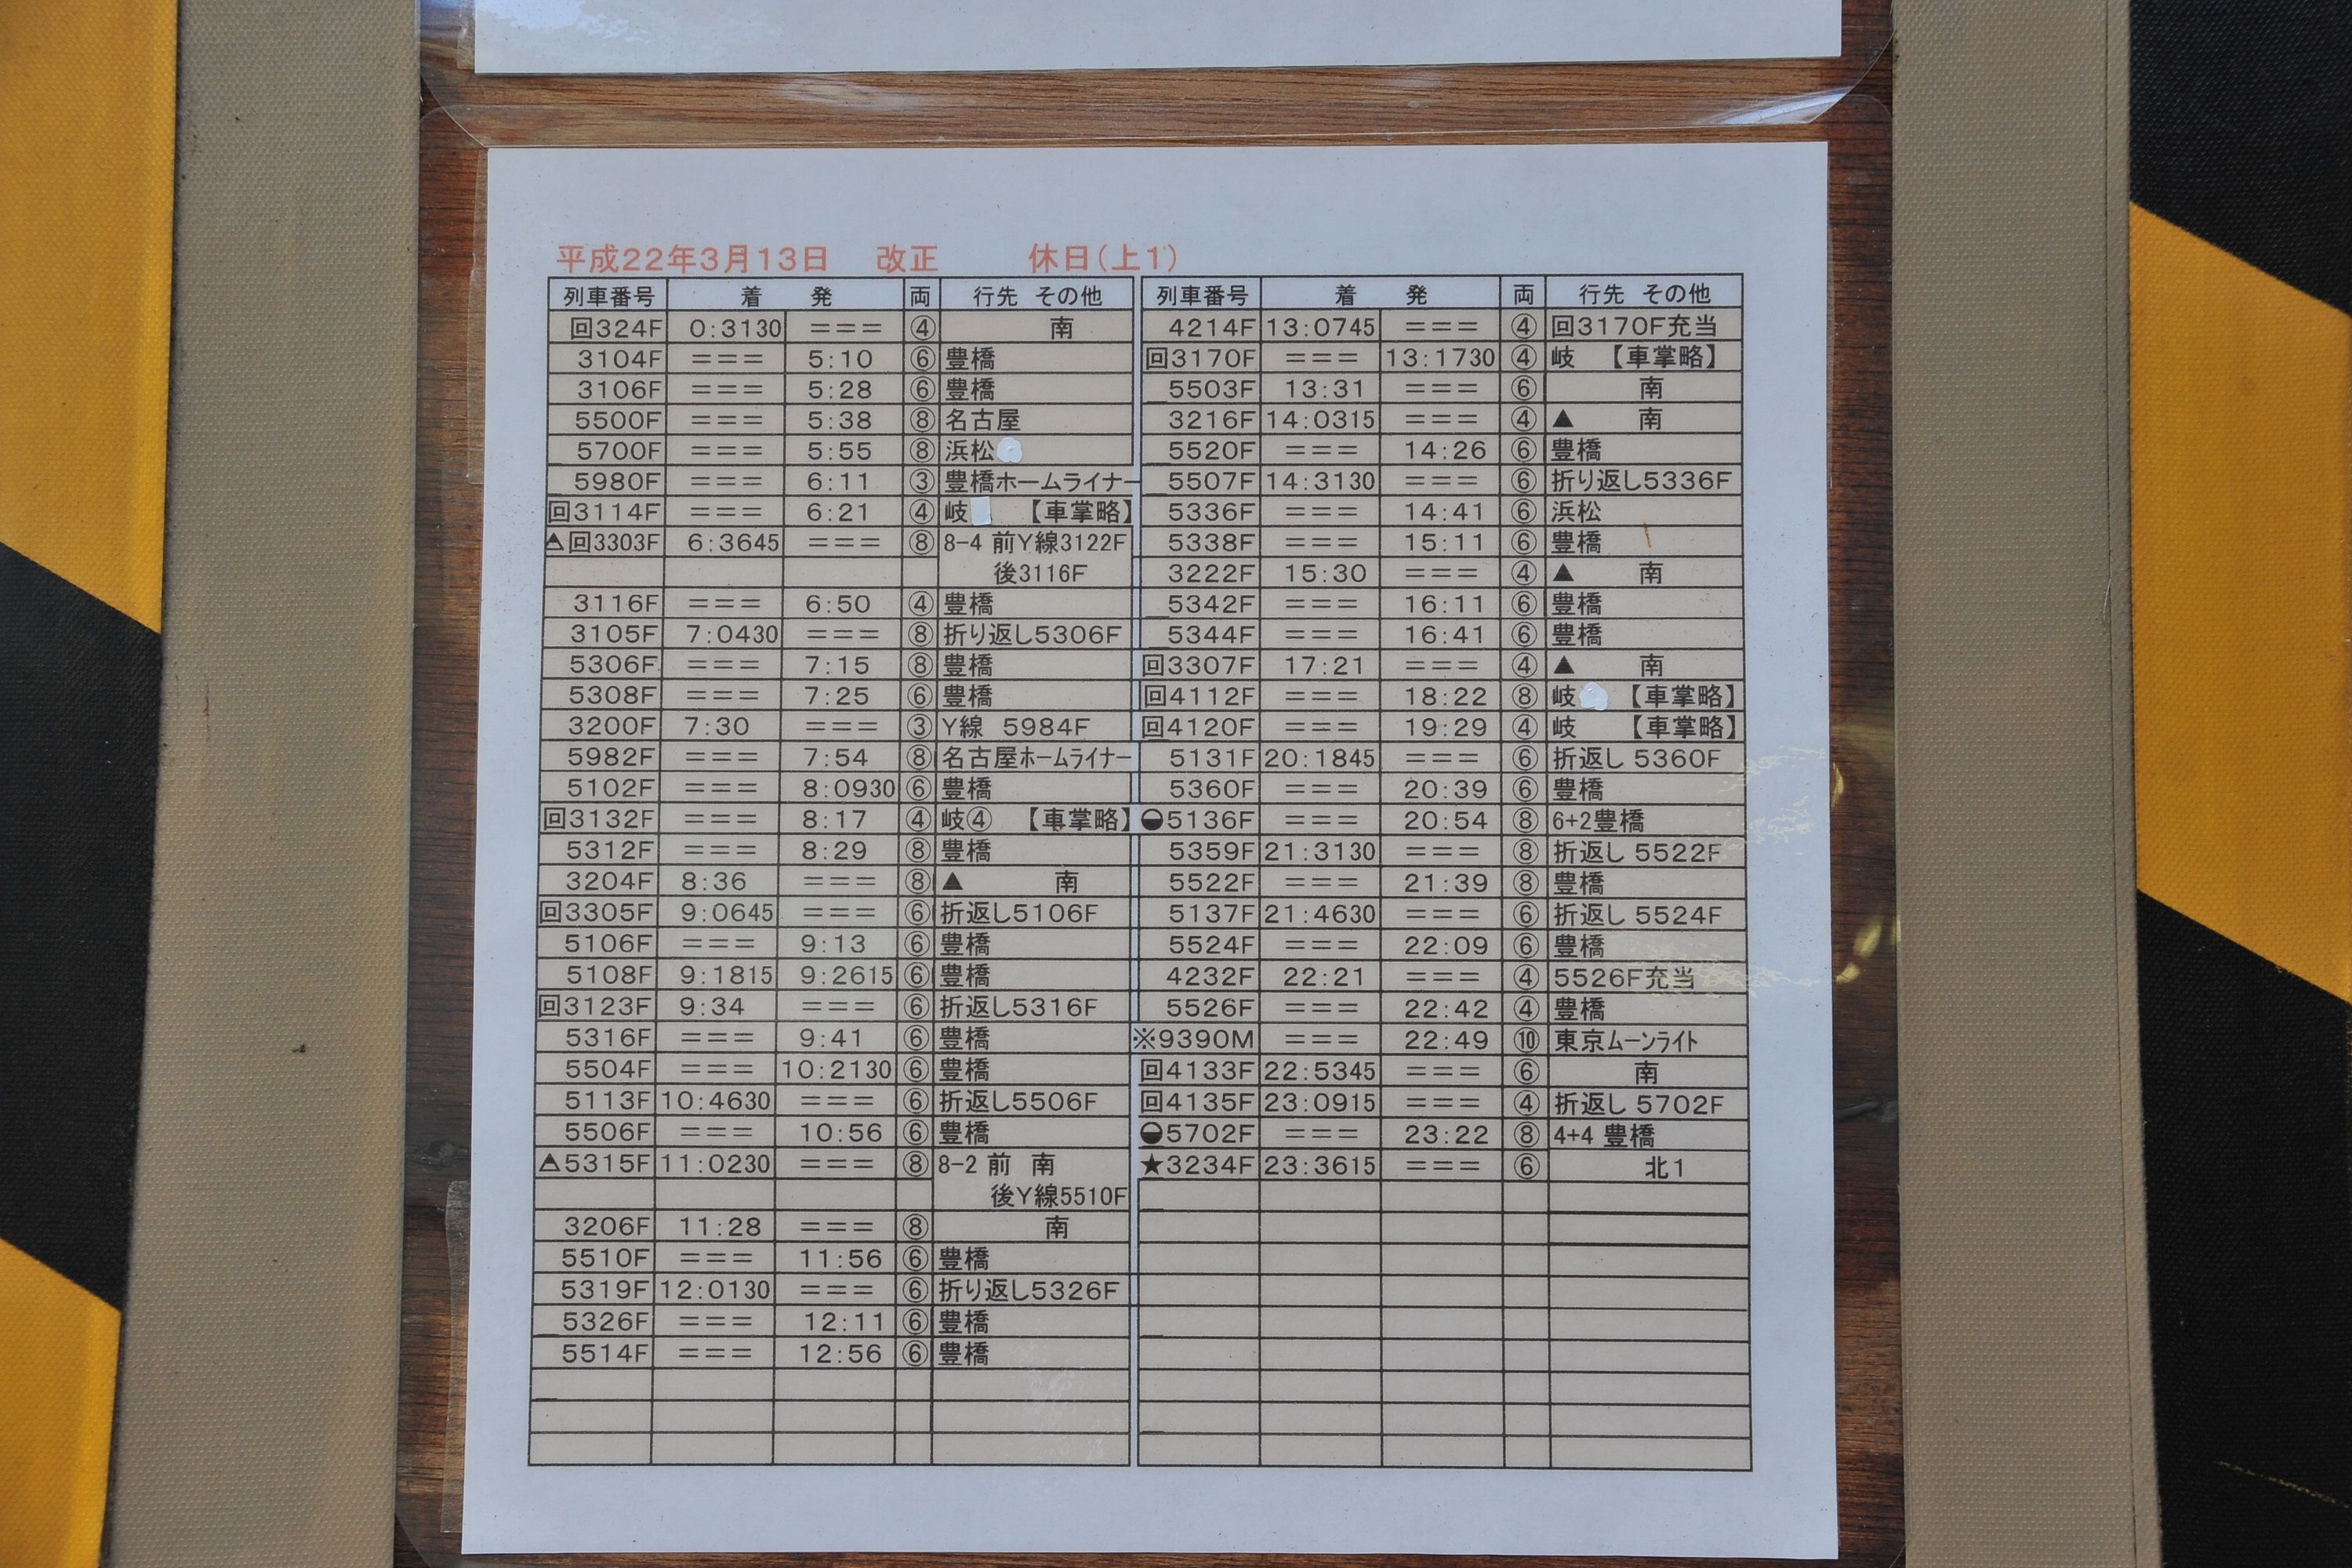 平成22年3月13日 改正 休日(上1)
列車番号 着 発 両 行先 その他
回324F 0:3130 === ④ 南
3104F === 5:10 ⑥ 豊橋
3106F === 5:28 ⑥ 豊橋
5500F === 5:38 ⑧ 名古屋
5700F === 5:55 ⑧ 浜松
5980F === 6:11 ③ 豊橋ホームライナー
回3114F === 6:21 ④ 岐 【車掌略】
回3303F 6:3645 === ⑧ 8-4 前Y線3122F
後3116F
3116F === 6:50 ④ 豊橋
3105F 7:0430 === ⑧ 折り返し5306F
5306F === 7:15 ⑧ 豊橋
5308F === 7:25 ⑥ 豊橋
3200F 7:30 === ③ Y線 5984F
5982F === 7:54 ⑧ 名古屋ホームライナー
5102F === 8:0930 ⑥ 豊橋
回3132F === 8:17 ④ 岐④ 【車掌略】
5312F === 8:29 ⑧ 豊橋
3204F 8:36 === ⑧ ▲ 南
回3305F 9:0645 === ⑥ 折返し5106F
5106F === 9:13 ⑥ 豊橋
5108F 9:1815 9:2615 ⑥ 豊橋
回3123F 9:34 === ⑥ 折返し5316F
5316F === 9:41 ⑥ 豊橋
5504F === 10:2130 ⑥ 豊橋
5113F 10:4630 === ⑥ 折返し5506F
5506F === 10:56 ⑥ 豊橋
5315F 11:0230 === ⑧ 8-2 前 南
後Y線5510F
3206F 11:28 === ⑧ 南
5510F === 11:56 ⑥ 豊橋
5319F 12:0130 === ⑥ 折り返し5326F
5326F === 12:11 ⑥ 豊橋
5514F === 12:56 ⑥ 豊橋
列車番号 着 発 両 行先 その他
4214F 13:0745 === ④ 回3170F充当
回3170F === 13:1730 ④ 岐 【車掌略】
5503F 13:31 === ⑥ 南
3216F 14:0315 === ④ ▲ 南
5520F === 14:26 ⑥ 豊橋
5507F 14:3130 === ⑥ 折り返し5336F
5336F === 14:41 ⑥ 浜松
5338F === 15:11 ⑥ 豊橋
3222F 15:30 === ④ ▲ 南
5342F === 16:11 ⑥ 豊橋
5344F === 16:41 ⑥ 豊橋
回3307F 17:21 === ④ ▲ 南
回4112F === 18:22 ⑧ 岐 【車掌略】
回4120F === 19:29 ④ 岐 【車掌略】
5131F 20:1845 === ⑥ 折返し 5360F
5360F === 20:39 ⑥ 豊橋
◒5136F === 20:54 ⑧ 6+2豊橋
5359F 21:3130 === ⑧ 折返し 5522F
5522F === 21:39 ⑧ 豊橋
5137F 21:4630 === ⑥ 折返し 5524F
5524F === 22:09 ⑥ 豊橋
4232F 22:21 === ④ 5526F充当
5526F === 22:42 ④ 豊橋
※9390M === 22:49 ⑩ 東京ムーンライト
回4133F 22:5345 === ⑥ 南
回4135F 23:0915 === ④ 折返し 5702F
◒5702F === 23:22 ⑧ 4+4 豊橋
★3234F 23:3615 === ⑥ 北1